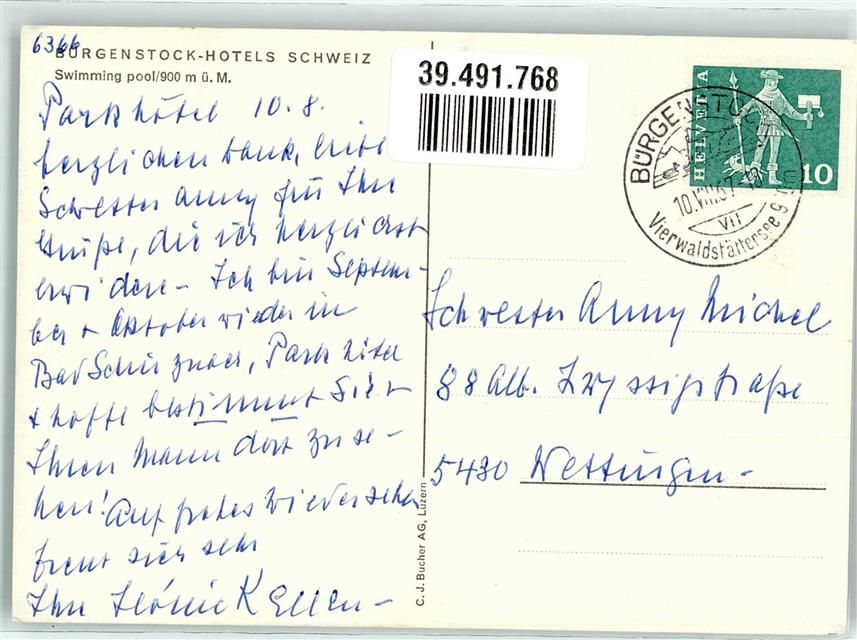 6366
BÜRGENSTOCK-HOTELS SCHWEIZ
Swimming pool/900 m ü. M.
39.491.768
HELVETIA
10
BÜRGENSTOCK
10.VIII.67-18
VII
Vierwaldstättersee 9 m
Parkhôtel 10.8.
herzlichen Dank, liebe
Schwester Anny für Ihre
Grüße, die ich herzlichst
erwidere - Ich bin Septem-
ber + Oktober wieder in
Bad Schinznach, Park hôtel
+ hoffe bestimmt Sie +
Ihren Mann dort zu se-
hen! Auf frohes Wiedersehen
freut sich sehr
Ihre Kellen-
Schwester Anny Michel
88 Alb. Zwyssigstraße
5430 Wettingen-
C. J. Bucher AG, Luzern